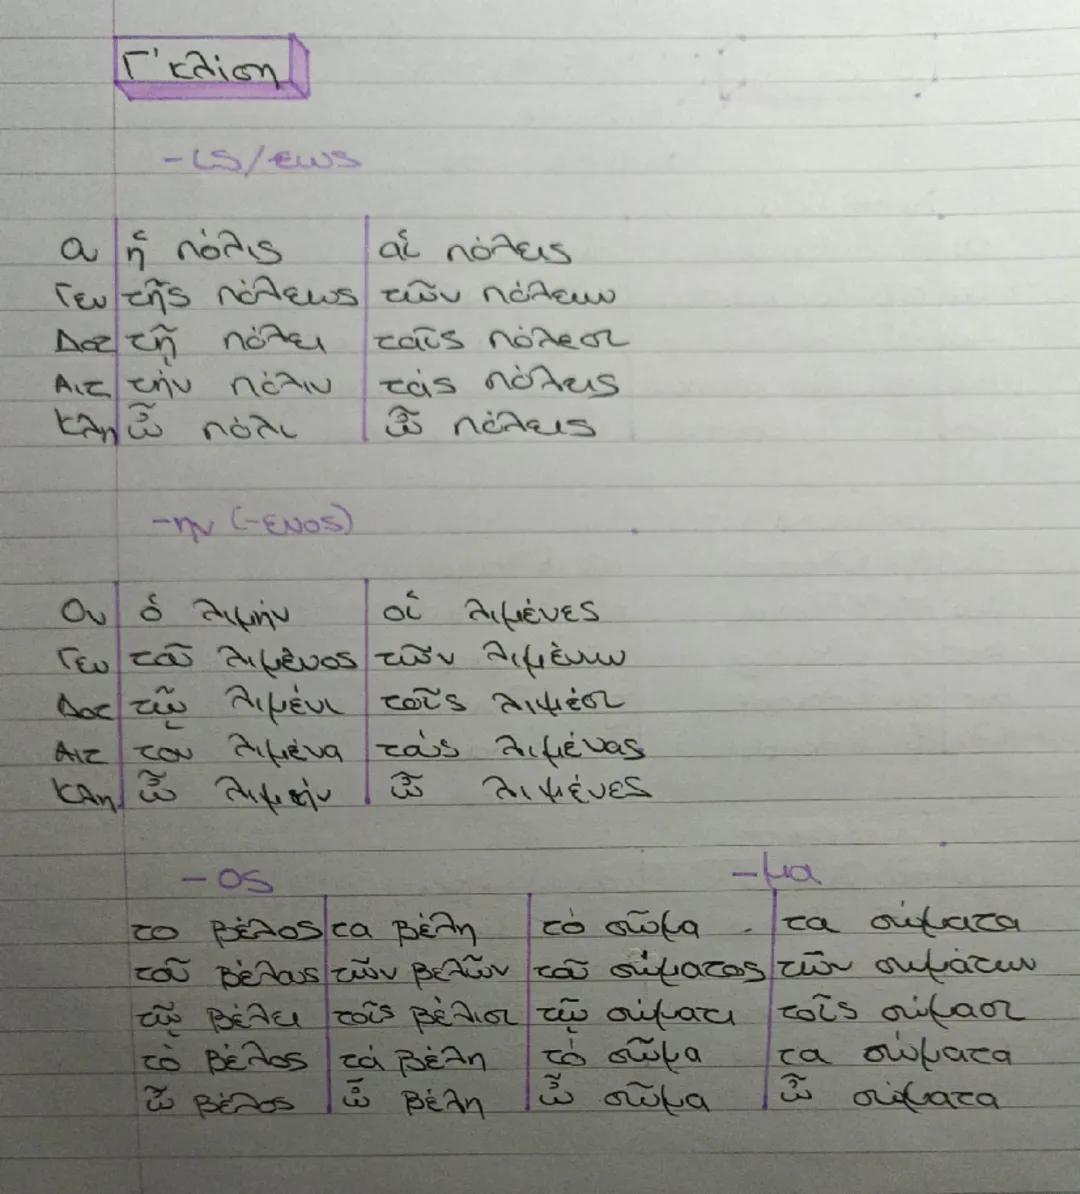 Γ' κλίση
-ις/εως
Ο ἡ πόλις αἱ πόλεις
Γεν τῆς πόλεως τῶν πόλεων
Δοτ τῇ πόλει ταῖς πόλεσι
Αιτ τήν πόλιν τάς πόλεις
Κλη ὦ πόλι ὦ πόλεις
-ην (-ενος)
Ον ὁ λιμήν οἱ λιμένες
Γεν τοῦ λιμένος τῶν λιμένων
Δοτ τῷ λιμένι τοῖς λιμέσι
Αιτ τον λιμένα τούς λιμένας
Κλη ὦ λιμήν ὦ λιμένες
-ος -μα
το βέλος τα βέλη τό σῶμα τα σώματα
τοῦ βέλους τῶν βελῶν τοῦ σώματος τῶν σωμάτων
τῷ βέλει τοῖς βέλεσι τῷ σώματι τοῖς σώμασι
τό βέλος τά βέλη τό σῶμα τα σώματα
ὦ βέλος ὦ βέλη ὦ σῶμα ὦ σώματα